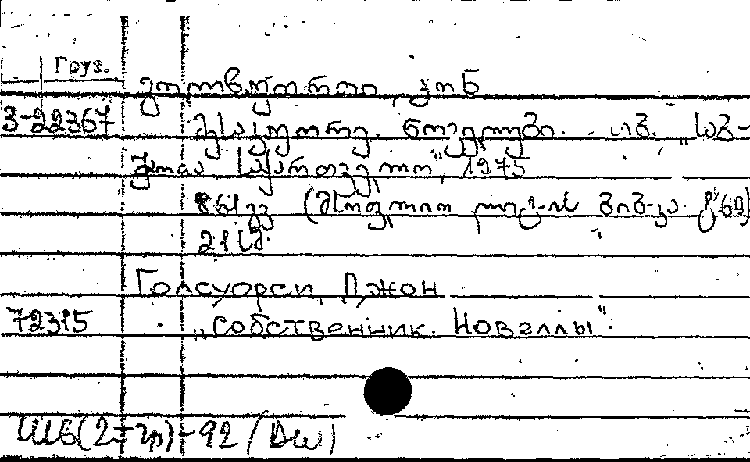 Груз.
გოლსუორთი, ჯონ
3-22367 მესაკუთრე. ნოველები. თბ. „საბ-
ჭოთა საქართველო", 1975
861 გვ (მსოფლიო ლიტ-ის ბიბ-კა
21 სმ.
Голсуорси, Джон
72315 „Собственник. Новеллы".